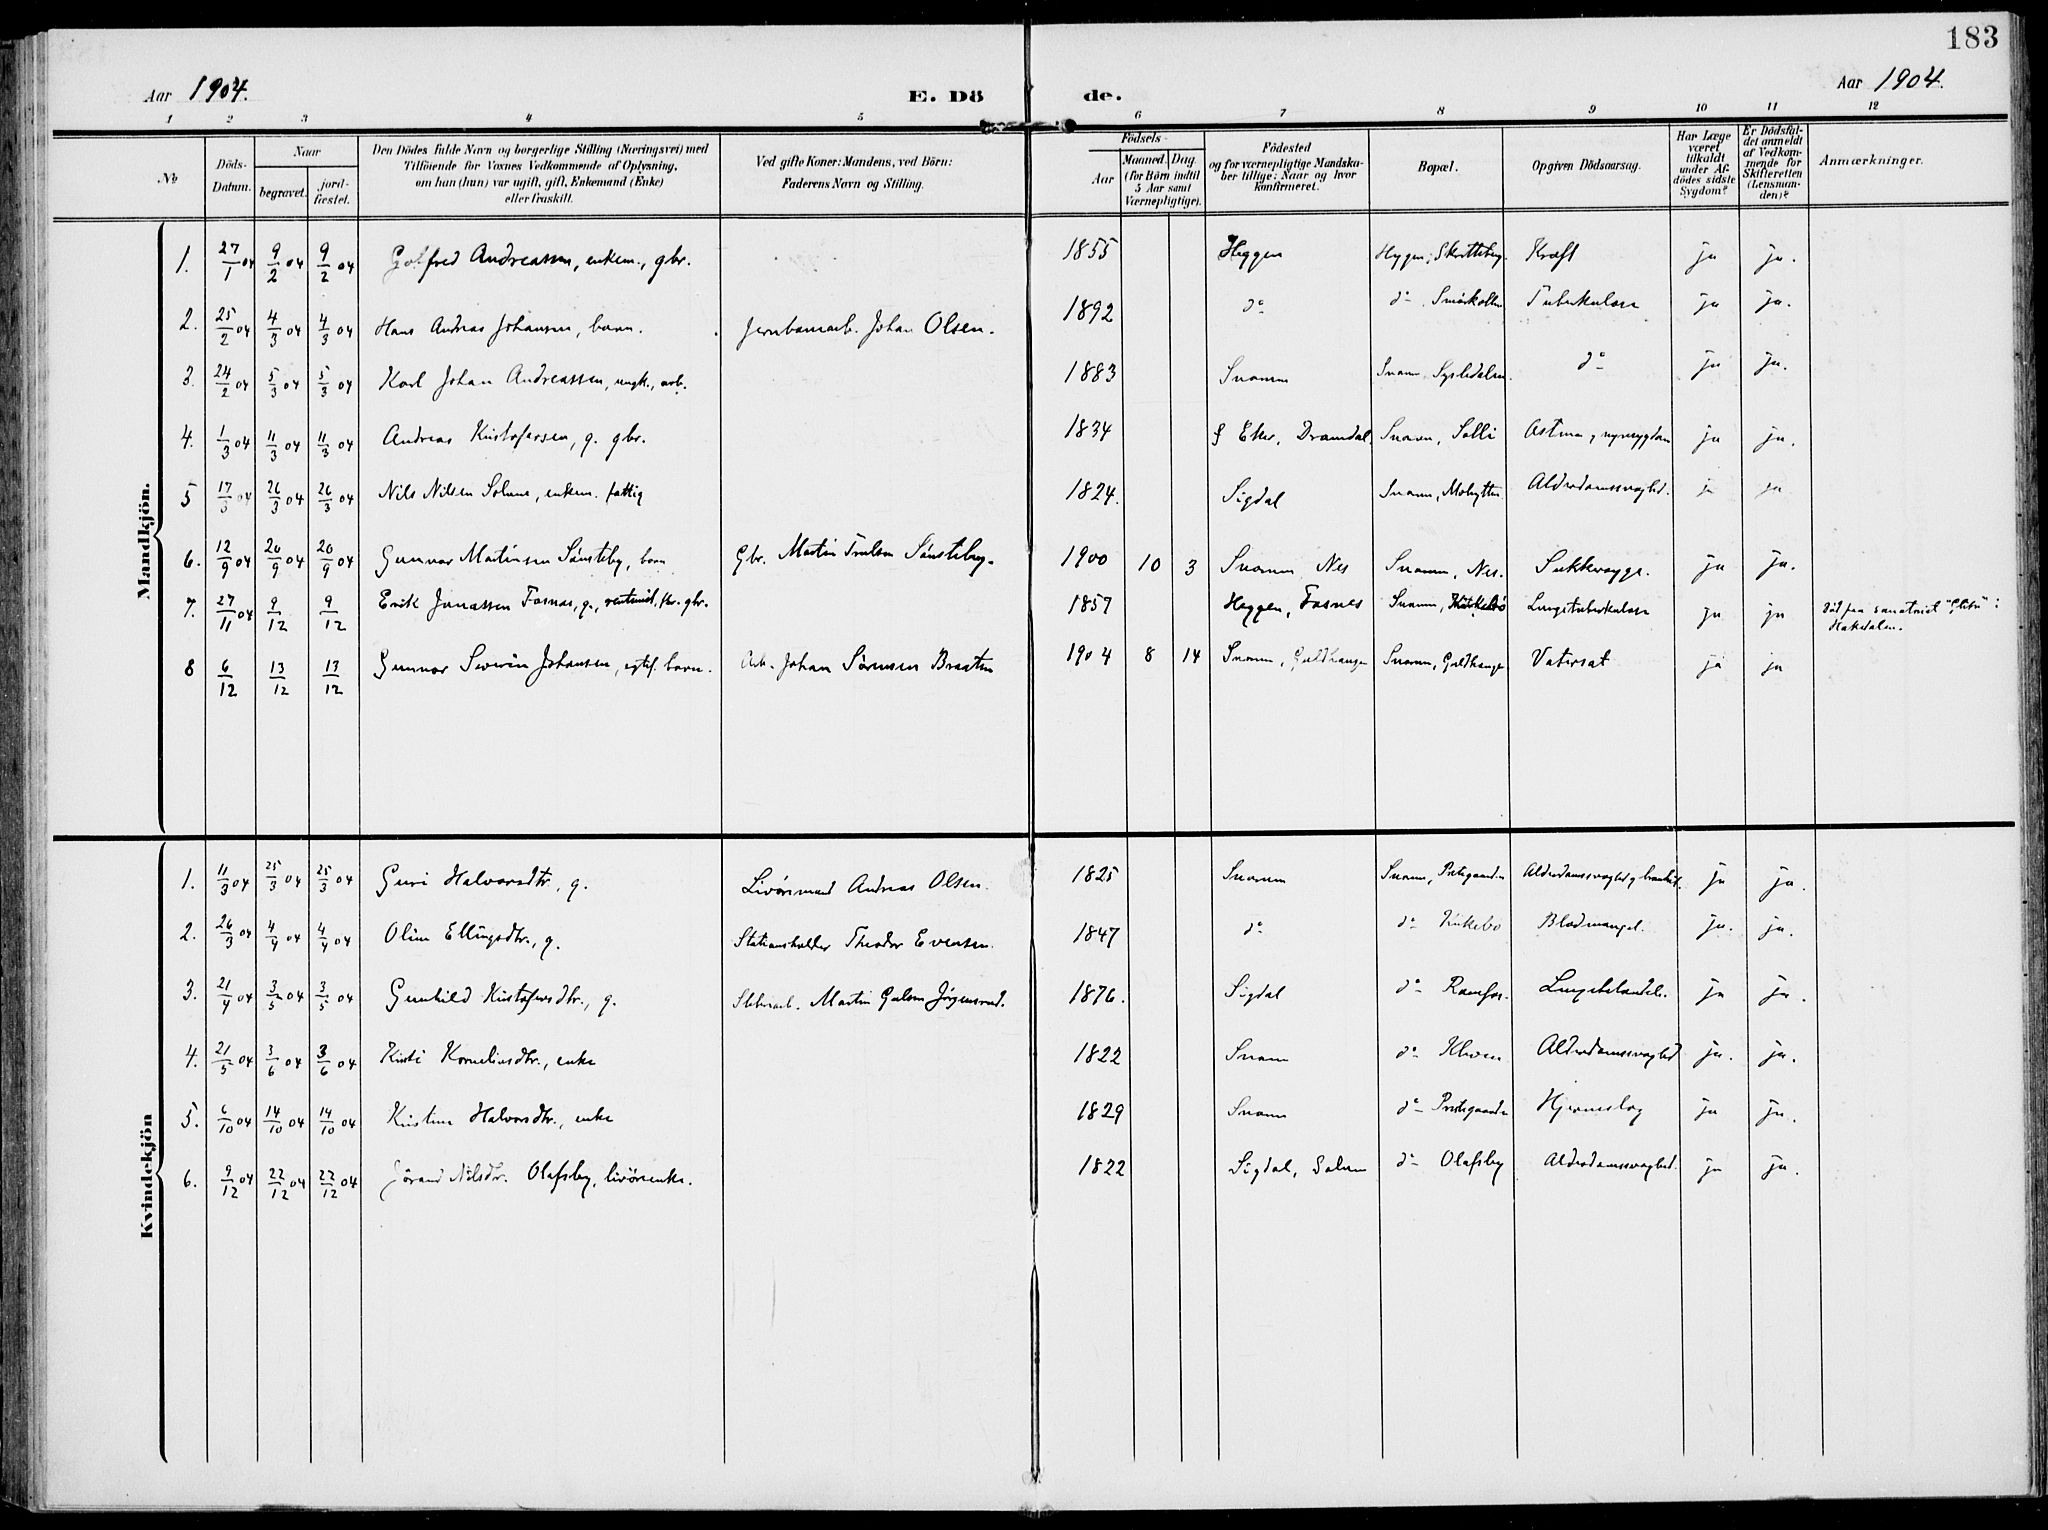 183
Aar 1904.
E. Dö de.
Aar 1904.
1 2 3 4 5 6 7 8 9 10 11 12
No
Döds-Datum.
Naar
begravet.
jord-fæstet.
Den Dödes fulde Navn og borgerlige Stilling (Næringsvei) med
Tilföiende for Voxnes Vedkommende af Oplysning,
om han (hun) var ugift, gift, Enkemand (Enke)
eller fraskilt.
Ved gifte Koner: Mandens, ved Börn:
Faderens Navn og Stilling.
Födsels-
Aar
Maaned. Dag.
(for Börn indtil
5 Aar samt
Værnepligtige).
Födested
og for værnepligtige Mandska-
ber tillige: Naar og hvor
konfirmeret.
Bopæl.
Opgiven Dödsaarsag.
Har Læge
været
tilkaldt
under Af-
dödes sidste
Sygdom?
Er Dödsfal-
det anmeldt
af Vedkom-
mende for
Skifteretten
(Lensman-
den)?
Anmærkninger.
Mandkjön.
1. 27/1 04 9/2 04 9/2 04 Gotfred Andreassen, enkem., gbr. 1855 Heggen Heggen, Kræft ja ja.
2. 25/2 04 4/3 04 4/3 04 Hans Andreas Johansen, barn. Jernbanearb. Johan Olsen. 1892 do do Tuberkulose ja ja.
3. 24/2 04 5/3 04 5/3 04 Karl Johan Andreassen, ungk., arb. 1883 Snarum Snarum, do ja ja.
4. 1/3 04 11/3 04 11/3 04 Andreas Kristofersen, g. gbr. 1834 Eker, Dramdal Snarum, Solli Astma ja ja.
5 17/3 04 26/3 04 26/3 04 Nils Nilsen Solum, enkem. fattig 1824. Sigdal Snarum, Alderdomssvaghed. ja ja
6. 12/9 04 20/9 04 20/9 04 Gunnar Martinsen Sönsteby, barn Gbr. Martin Trulsen Sönsteby. 1900 10 3 Snarum Nes Snarum, Nes. Sukkersyge. ja ja.
7. 27/11 04 9/12 9/12 Erik Jonassen Fosnes, g., gbr. 1857 Heggen, Fosnes Snarum, Lungetuberkulose ja ja död paa sanatoriet "Glitre" i
Hakedalen.
8 6/12 13/12 13/12 Gunnar Severin Johansen, barn. Arb. Johan Sörensen Braaten 1904 8 14 Snarum, Snarum, Vatersot ja ja
Kvindekjön
1. 11/3 04 25/3 04 25/3 04 Guri Halvorsdtr., g. Livörsmand Andreas Olsen. 1825 Snarum Snarum, Prestgaarden Alderdomssvaghed ja ja.
2. 26/3 04 4/4 04 4/4 04 Oline Ellingsdtr., g. Stationsholder Theodor Evensen. 1847 do do Kirkebö Blodmangel. ja. ja.
3. 21/4 04 3/5 04 3/5 04 Gunhild Kristofersdtr., g. Martin Gulsen Jörgensrud. 1876. Sigdal do Ramfos. Lungebetændelse. ja ja.
4. 21/5 04 3/6 04 3/6 04 Kirsti Korneliusdtr., enke 1822 Snarum do Alderdomssvaghed ja. ja.
5. 6/10 04 14/10 04 14/10 04 Kristine Halvorsdtr., enke 1829 Snarum do Prestegaarden Hjerneslag ja ja.
6. 9/12 04 22/12 04 22/12 04 Jörand Nilsdtr. Olafsby, livörsenke. 1822 Sigdal, Solum do Olafsby Alderdomssvaghed. ja ja.